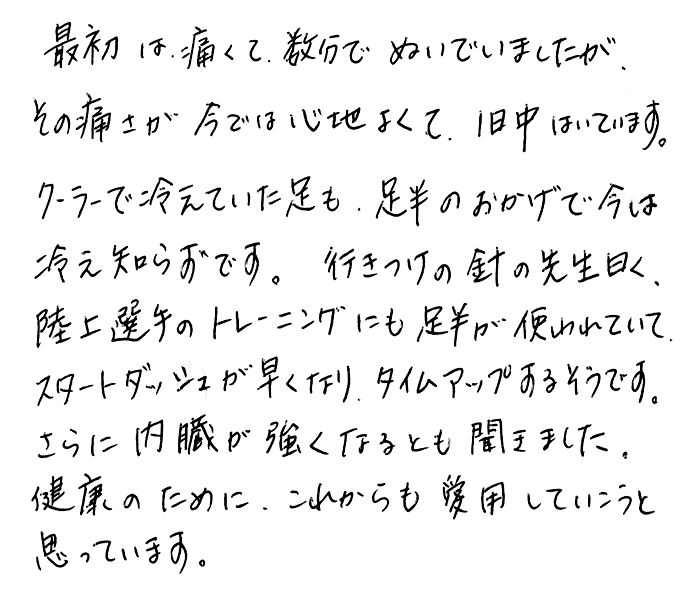 最初は、痛くて、数分でぬいでいましたが、
その痛さが今では心地よくて、1日中はいています。
クーラーで冷えていた足も、足半のおかげで今は
冷え知らずです。 行きつけの針の先生曰く、
陸上選手のトレーニングにも足半が使われていて、
スタートダッシュが早くなり、タイムアップあるそうです。
さらに内臓が強くなるとも聞きました。
健康のために、これからも愛用していこうと
思っています。